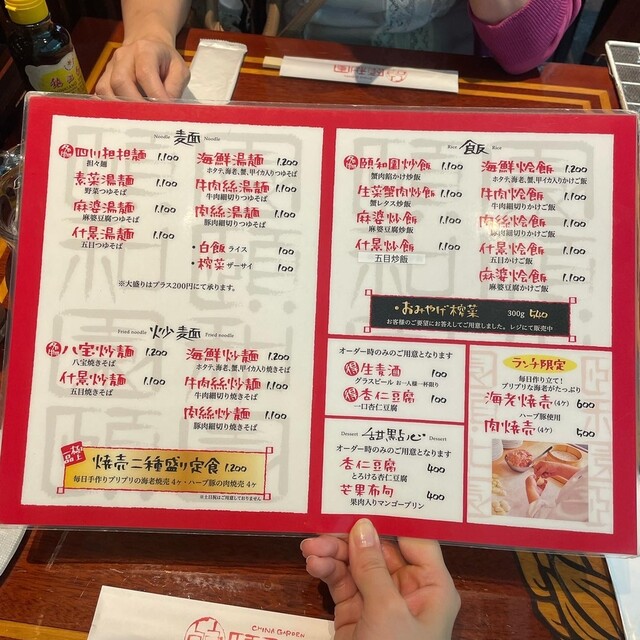 Noodle 麺 Noodle
名物 四川担担麺 1.100
担々麺
素菜湯麺 1.100
野菜つゆそば
麻婆湯麺 1.100
麻婆豆腐つゆそば
什景湯麺 1.100
五目つゆそば
海鮮湯麺 1.200
ホタテ、海老、蟹、甲イカ入りつゆそば
牛肉絲湯麺 1.100
牛肉細切りつゆそば
肉絲湯麺 1.100
豚肉細切りつゆそば
・白飯 ライス 100
・搾菜 ザーサイ 100
※大盛りはプラス200円にて承ります。
Fried noodle 炒麺 Fried noodle
名物 八宝炒麺 1.200
八宝焼きそば
什景炒麺 1.100
五目焼きそば
海鮮炒麺 1.200
ホタテ、海老、蟹、甲イカ入り焼きそば
牛肉絲炒麺 1.100
牛肉細切り焼きそば
肉絲炒麺 1.100
豚肉細切り焼きそば
極上品
焼売二種盛り定食 1.200
毎日手作りプリプリの海老焼売 4ヶ・ハーブ豚の肉焼売 4ヶ
※土日祝はご用意しておりません
Rice 飯 Rice
名物 頤和園炒飯 1.100
蟹肉餡かけ炒飯
生菜蟹肉炒飯 1.100
蟹レタス炒飯
麻婆炒飯 1.100
麻婆豆腐炒飯
什景炒飯 1.100
五目炒飯
海鮮烩飯 1.200
ホタテ、海老、蟹、甲イカ入りかけご飯
牛肉烩飯 1.100
牛肉細切りかけご飯
肉絲烩飯 1.100
豚肉細切りかけご飯
什景烩飯 1.100
五目かけご飯
麻婆烩飯 1.100
麻婆豆腐かけご飯
・おみやげ搾菜 300g 540
お客様のご要望にお答えしてご用意しました。レジにて販売中
オーダー時のみのご用意となります
得 生麦酒 100
グラスビール お一人様一杯限り
得 杏仁豆腐 100
一口杏仁豆腐
Dessert 甜點心 Dessert
オーダー時のみのご用意となります
杏仁豆腐 400
とろける杏仁豆腐
芒果布甸 400
果肉入りマンゴープリン
ランチ限定
毎日作り立て!
プリプリな海老がたっぷり
海老焼売(4ヶ) 600
ハーブ豚使用
肉焼売(4ヶ) 500
CHINA GARDEN